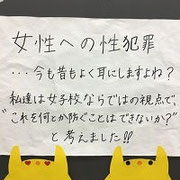 女性への性犯罪
…今も昔もよく耳にしますよね？
私達は女子校ならではの視点で、
“これを何とか防ぐことはできないか？”
と考えました!!